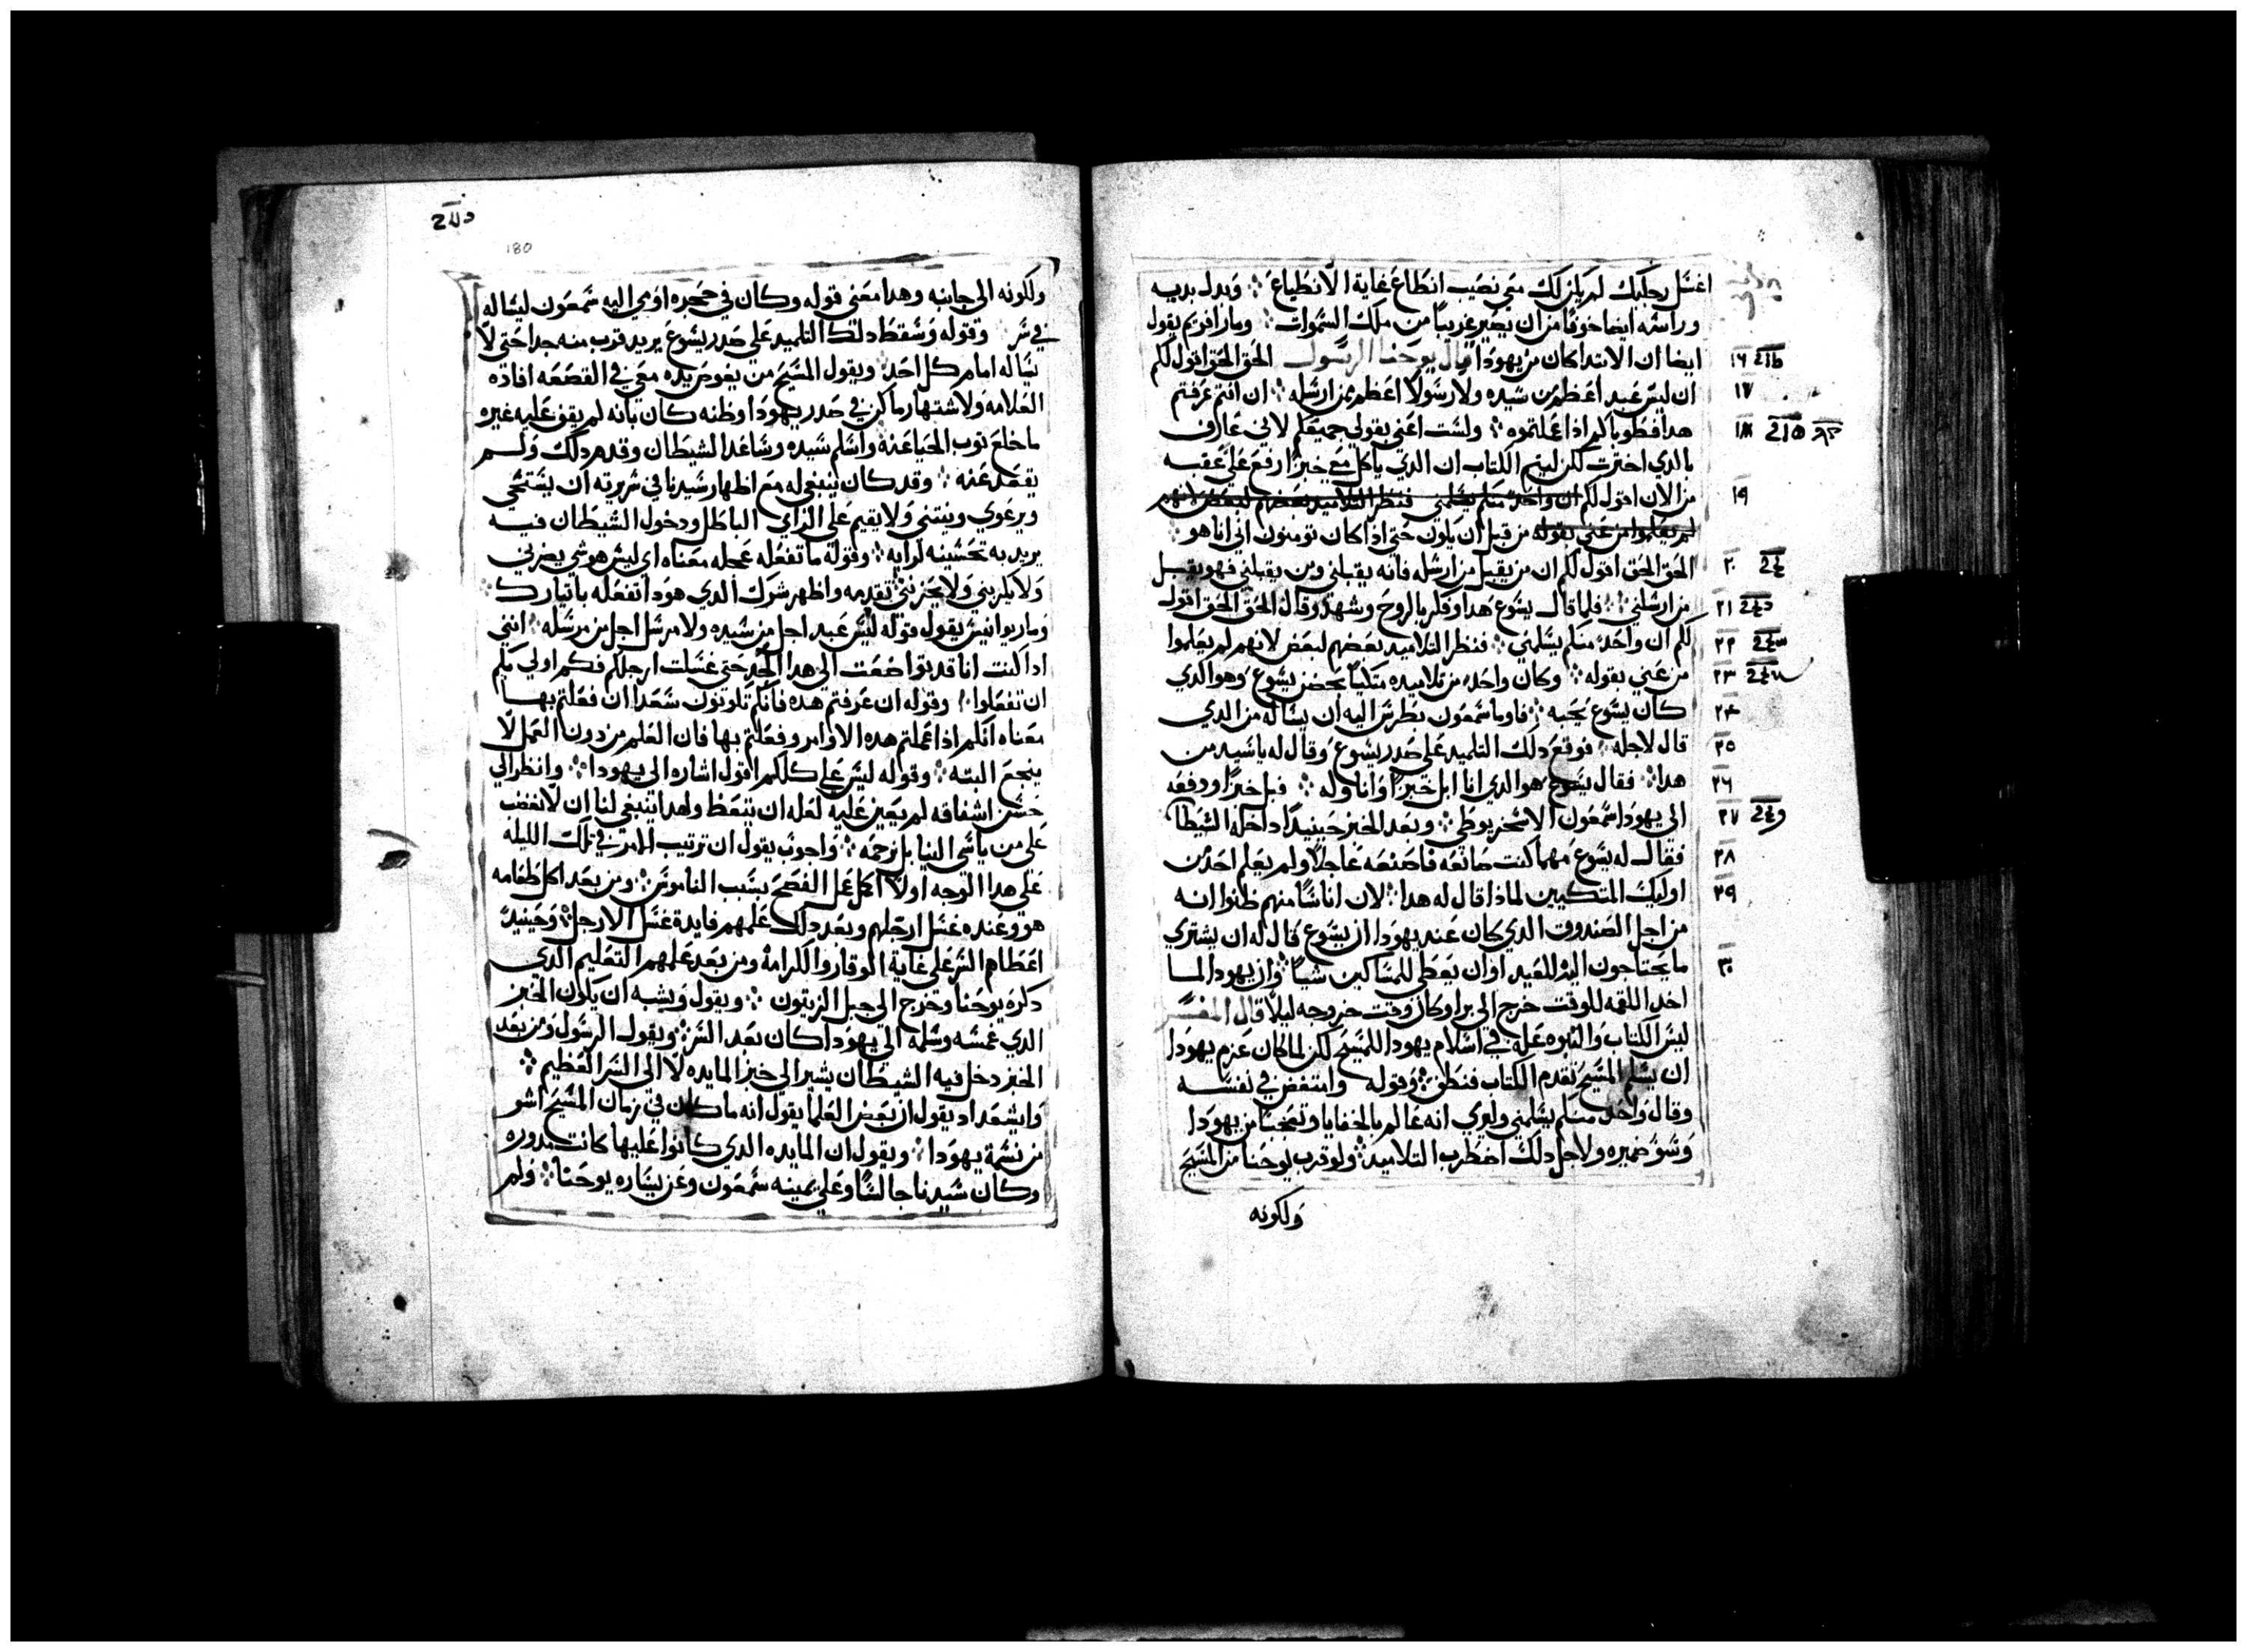 اغسل رجليك لم يكن لك معي نصيب انطاع غاية الانطياع وبدل يديه
وراسه ايضا خوفا من ان يصير غريبا من ملك السموات ومار افريم يقول
ايضا ان الابتدا كان من يهودا قال يوحنا الرسول الحق الحق اقول لكم
ان ليس عبد اعظم من سيده ولا رسولا اعظم ممن ارسله ان انتم عرفتم
هدا فطوباكم اذا عملتموه ولست اعني بقولي جميعكم لاني عارف
بالدي اخترت لكن ليتم الكتاب ان الدي ياكل معي خبزا رفع علي عقبه
من الان اقول لكم ان واحد منكم يسلمني فنظر التلاميد بعضهم لبعض لانهم
لم يعلموا من عني بقوله من قبل ان يكون حتى اذا كان تومنون اني انا هو
الحق الحق اقول لكم ان من يقبل من ارسله فانه يقبلني ومن يقبلني فهو يقبل
من ارسلني فلما قال يسوع هدا وقلق بالروح وشهد وقال الحق الحق اقول
لكم ان واحد منكم يسلمني فنظر التلاميد بعضهم لبعض لانهم لم يعلموا
من عني بقوله وكان واحد من تلاميده متكيا بحضن يسوع وهو الدي
كان يسوع يحبه فاوما سمعون بطرس اليه ان يساله من الدي
قال لاجله فوقع دلك التلميد على صدر يسوع وقال له ياسيد من
هدا فقال يسوع هو الدي انا ابل خبزا واناوله فبل خبزا ودفعه
الى يهودا سمعون الاسخريوطي وبعد الخبز حينيد داخله الشيطان
فقال له يسوع مهما كنت صانعه فاصنعه عاجلا ولم يعلم احد من
اوليك المتكيين لماذا قال له هدا لان اناسا منهم ظنوا انه
من اجل الصندوق الدي كان عند يهودا ان يسوع قال له ان يشتري
ما يحتاجون اليه للعيد او ان يعطي للمساكين شيا وان يهودا لما
اخد اللقمه للوقت خرج الى برا وكان وقت خروجه ليلا قال المفسر
ليس الكتاب والنبوه عله في اسلام يهودا للمسيح لكن لما كان عزم يهودا
ان يسلم المسيح تقدم الكتاب فنطق وقوله وامتغض في نفسه
وقال واحد منكم يسلمني وليري انه عالم بالخفايا وتعجبا من يهودا
وسو ضميره ولاجل دلك اضطرب التلاميد ولو قرب يوحنا من المسيح
ولكونه
١٦
١٧
١٨
١٩
٢٠
٢١
٢٢
٢٣
٢٤
٢٥
٢٦
٢٧
٢٨
٢٩
٣٠
180
ولكونه الى جانبه وهدا معنى قوله وكان في حجره اومى اليه سمعون ليساله
في سر وقوله وسقط دلك التلميد على صدر يسوع يريد قرب منه جدا حتى لا
يساله امام كل احد ويقول المسيح من يغوص يده معي في القصعه افاده
العلامه ولاشتهار ما كن في صدر يهودا وظنه كان بانه لم يقف عليه غيره
ما خلع توب الحيا عنه واسلم سيده وساعد الشيطان وقدم دلك ولم
يقصد عنه وقد كان ينبغي له مع اظهار سيدنا في سريرته ان يستحي
ويرعوي وينتني ولا يقيم على الراي الباطل ودخول الشيطان فيه
يريد به تحسينه لرايه وقوله ما تفعله عجله معناه اي ليس هو شي يضرني
ولا يكربني ولا يحزنني تقدمه واظهر شرك الدي هودا تفعله باتيارك
ومار يوانيس يقول قوله ليس عبد اجل من سيده ولا مرسل اجل من مرسله انني
ادا كنت انا قد تواضعت الى هدا الحد حتى غسلت ارجلكم فكم اولي بكم
ان تفعلوا وقوله ان عرفتم هده فانكم تكونون سعدا ان فعلتم بها
معناه انكم اذا عملتم هده الاوامر وفعلتم بها فان العلم من دون العمل لا
ينجع البته وقوله ليس علي كلكم اقول اشاره الى يهودا وانظر الي
حسن اشفاقه لم يعين عليه لعله ان يتعظ ولهدا ينبغي لنا ان لا نغضب
على من ياسي الينا بل نرحمه واجوب يقول ان ترتيب الامر في تلك الليله
على هدا الوجه اولا اكل عمل الفصح بسبب الناموس ومن بعد اكل طعامه
هو وعنده غسل ارجلهم وبعد دلك علمهم فايدة غسل الارجل وحينيد
اعطاهم السر على غاية الوقار والكرامه ومن بعد علمهم التعليم الدي
دكره يوحنا وخرج الى جبل الزيتون ويقول ويشبه ان يكون الخبز
الدي غمسه وسلمه الى يهودا كان بعد السر ويقول الرسول ومن بعد
الخبز دخل فيه الشيطان يشير الى خبز المايده لا الى السر العظيم
وايشعداد يقول ان بعض العلما يقول انه ما كان في زمان المسيح اشر
من نسمة يهودا ويقول ان المايده الدي كانوا عليها كانت مدوره
وكان سيدنا جالسا وعلى يمينه سمعون وعن يساره يوحنا ولم